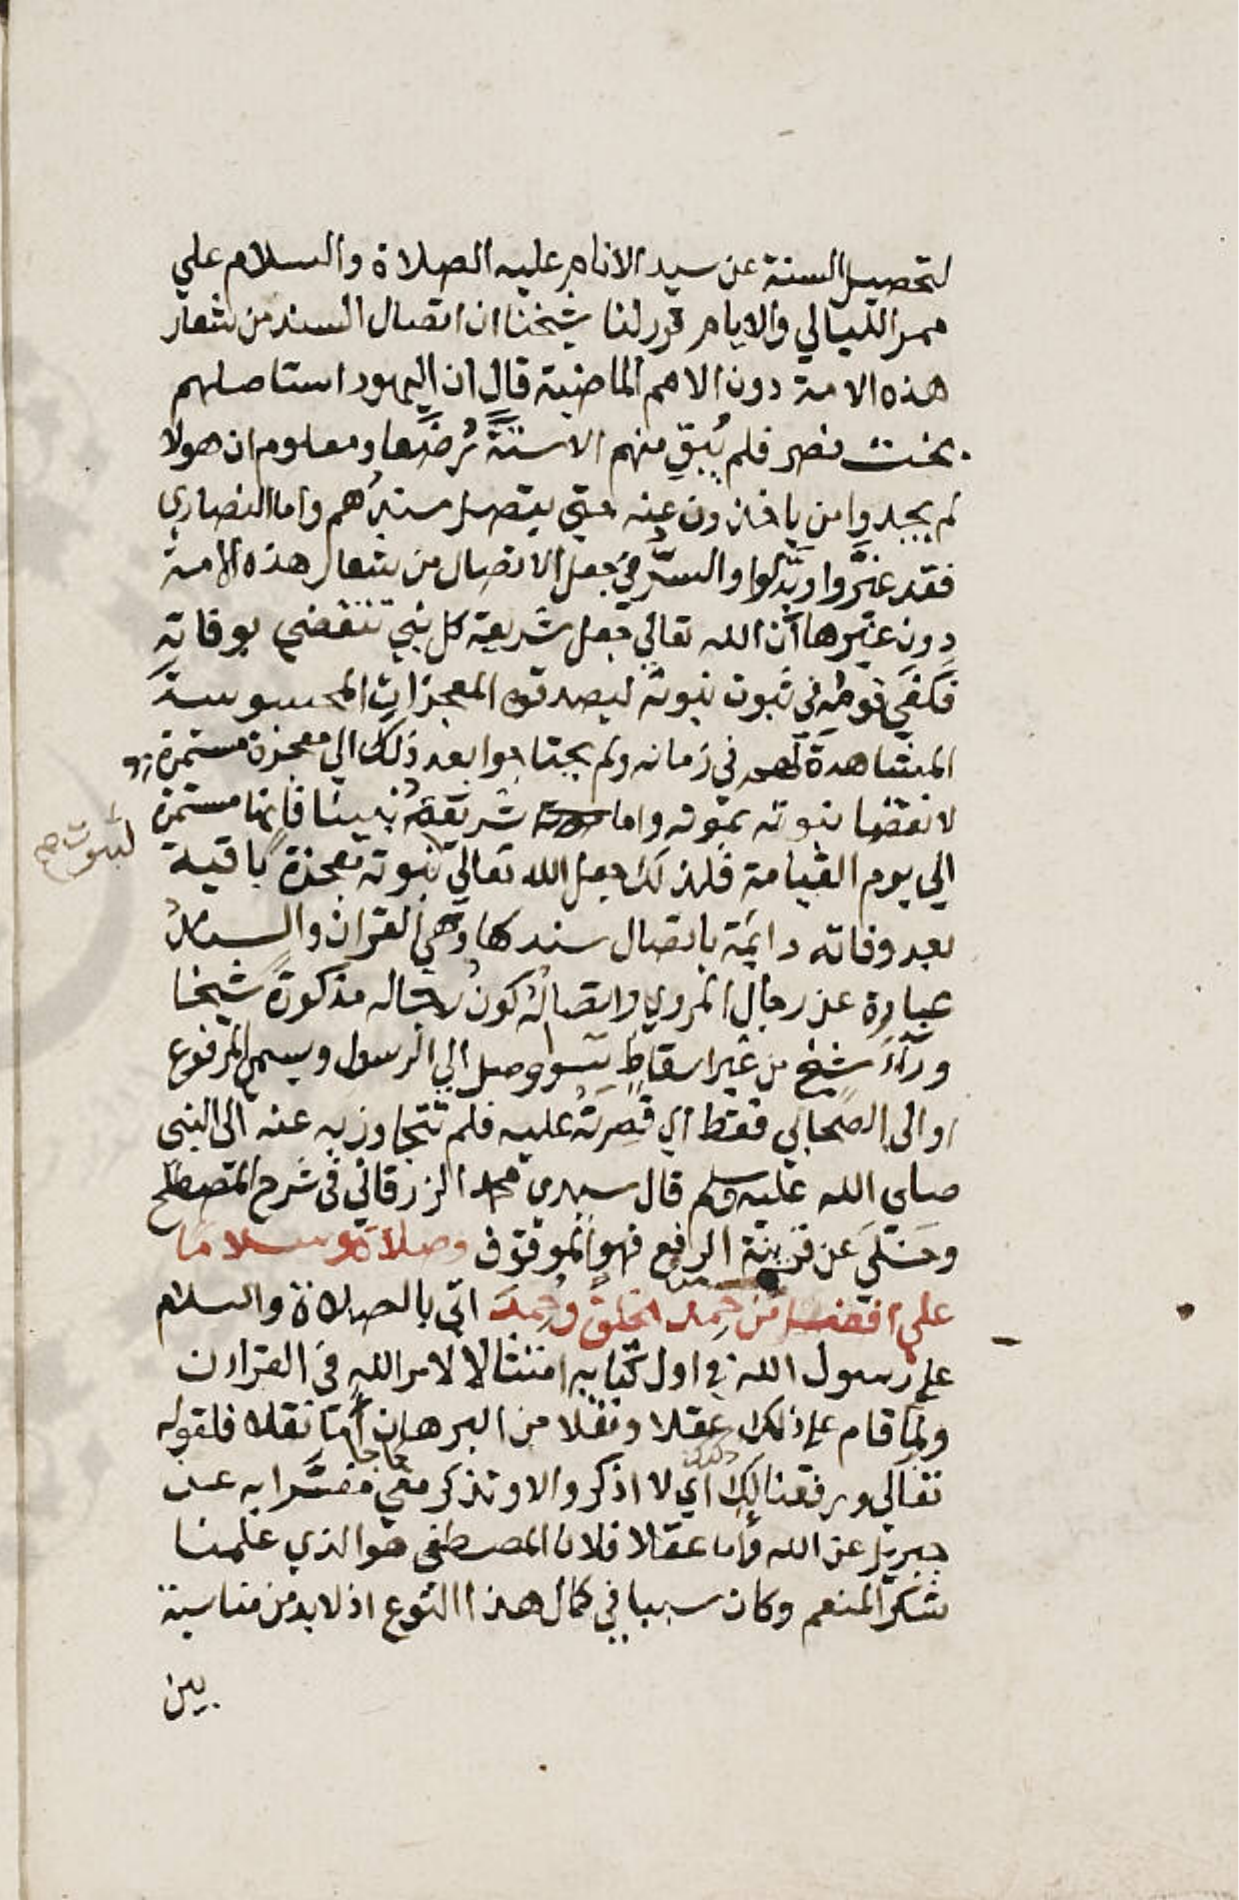 لتحصيل السنة عن سيد الانام عليه الصلاة والسلام علي
ممر الليالي والايام قرر لنا شيخنا ان اتصال السند من شعار
هذه الامة دون الامم الماضية قال ان اليهود استاصلهم
بخت نصر فلم يُبقِ منهم الا ستةً رُضَّعا ومعلوم ان هولا
لم يجدوا من ياخذون عنه حتي يتصل سندُهم واما النصاري
فقد غيَّروا وبدَّلوا والسرُّ في جعل الاتصال من شعار هذه الامة
دون غيرها أن الله تعالي جعل شريعة كل نبي تنقضي بوفاته
فكفي في ثبوت نبوته المعجزات المحسوسة
المشاهدة في زمانه ولم يحتاجوا بعد ذلك الي معجزة مستمرة
لانقضا نبوته بموته واما شريعةُ نبينا فانها مستمرة
لثبوت صح
الي يوم القيامة فلذلك جعل الله تعالي نبوته معجزة باقية
بعد وفاته دايمة باتصال سندها وهي القران والسندُ
عبارة عن رجال المروي واتصالُه كونُ رجاله مذكورة شيخا
وراءَ شيخ من غير اسقاطٍ سوا وصل الي الرسول ويسمي المرفوع
او الي الصحابي فقط اي قصرتَه عليه فلم تتجاوز به عنه الي النبي
صلي الله عليه وسلم قال سيدي محمد الزرقاني في شرح المصطلح
وخلي عن قرينة الرفع فهو الموقوف وصلاة وسلاما
علي افضل من حمد الخلق وحُمِدَ اتي بالصلاة والسلام
علي رسول الله في اول كتابه امتثالا لامر الله في القران
ولما قام علي ذلك عقلا ونقلا من البرهان أما نقلا فلقوله
تعالي ورفعنا لك ذكرك اي لا اذكر الا وتذكر معي كما جا مفسَّرا به عن
جبريل عن الله وأما عقلا فلان المصطفي هو الذي علمنا
شكر المنعم وكان سببا في كمال هذا النوع اذ لا بد من مناسبة
بين